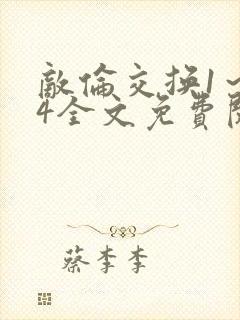 敵倫交换1～
4全文免費閱
蔡李李